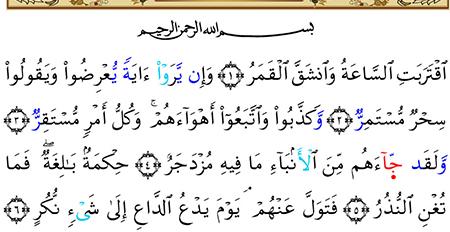 بسم الله الرحمن الرحيم
ٱقْتَرَبَتِ ٱلسَّاعَةُ وَٱنشَقَّ ٱلْقَمَرُ ﴿١﴾ وَإِن يَّرَوْا۟ ءَايَةً يُّعْرِضُوا۟ وَيَقُولُوا۟
سِحْرٌ مُّسْتَمِرٌّ ﴿٢﴾ وَّكَذَّبُوا۟ وَٱتَّبَعُوٓا۟ أَهْوَآءَهُمْ ۚ وَكُلُّ أَمْرٍ مُّسْتَقِرٌّ ﴿٣﴾
وَلَقَدْ جَآءَهُم مِّنَ ٱلْأَنۢبَآءِ مَا فِيهِ مُزْدَجَرٌ ﴿٤﴾ حِكْمَةٌۢ بَـٰلِغَةٌ ۖ فَمَا
تُغْنِ ٱلنُّذُرُ ﴿٥﴾ فَتَوَلَّ عَنْهُمْ ۘ يَوْمَ يَدْعُ ٱلدَّاعِ إِلَىٰ شَىْءٍ نُّكُرٍ ﴿٦﴾